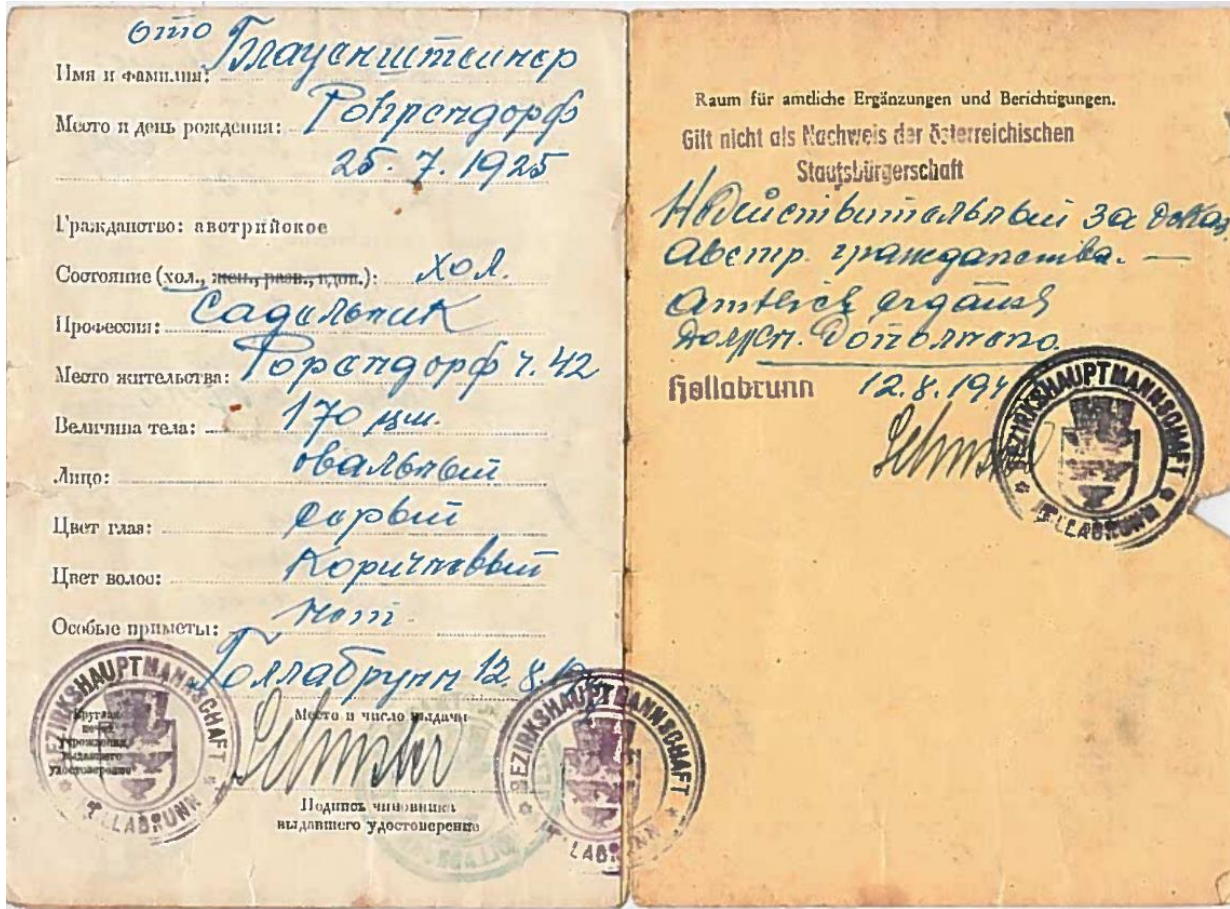 Имя и фамилия: Отто Блауенштеинер
Место и день рождения: Рогрендорф
25. 7. 1925
Гражданство: австрийское
Состояние (хол., жен., разв., вдов.): хол.
Профессия: Садильник
Место жительства: Рорендорф ч. 42
Величина тела: 170 цм.
Лицо: овальный
Цвет глаз: серый
Цвет волос: коричневый
Особые приметы: нет
Голлабрунн 12. 8.
Место и число выдачи
Круглая
печать
учреждения,
выдавшего
удостоверение
Подпись чиновника
выдавшего удостоверение
BEZIRKSHAUPTMANNSCHAFT
HOLLABRUNN
BEZIRKSHAUPTMANNSCHAFT
Raum für amtliche Ergänzungen und Berichtigungen.
Gilt nicht als Nachweis der österreichischen
Staatsbürgerschaft
Недействительный за доказ
Австр. гражданства. —
Amtlich ergänzt
Должн. Дополнено.
Hollabrunn 12. 8. 194
BEZIRKSHAUPTMANNSCHAFT
HOLLABRUNN